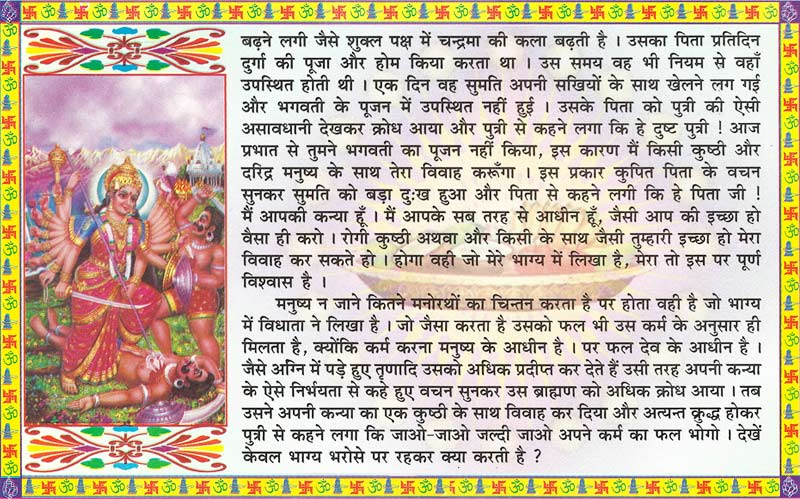 बढ़ने लगी जैसे शुक्ल पक्ष में चन्द्रमा की कला बढ़ती है । उसका पिता प्रतिदिन
दुर्गा की पूजा और होम किया करता था । उस समय वह भी नियम से वहाँ
उपस्थित होती थी । एक दिन वह सुमति अपनी सखियों के साथ खेलने लग गई
और भगवती के पूजन में उपस्थित नहीं हुई । उसके पिता को पुत्री की ऐसी
असावधानी देखकर क्रोध आया और पुत्री से कहने लगा कि हे दुष्ट पुत्री ! आज
प्रभात से तुमने भगवती का पूजन नहीं किया, इस कारण मैं किसी कुष्ठी और
दरिद्र मनुष्य के साथ तेरा विवाह करूँगा । इस प्रकार कुपित पिता के वचन
सुनकर सुमति को बड़ा दुःख हुआ और पिता से कहने लगी कि हे पिता जी !
मैं आपकी कन्या हूँ । मैं आपके सब तरह से आधीन हूँ, जैसी आप की इच्छा हो
वैसा ही करो । रोगी कुष्ठी अथवा और किसी के साथ जैसी तुम्हारी इच्छा हो मेरा
विवाह कर सकते हो । होगा वही जो मेरे भाग्य में लिखा है, मेरा तो इस पर पूर्ण
विश्वास है ।
मनुष्य न जाने कितने मनोरथों का चिन्तन करता है पर होता वही है जो भाग्य
में विधाता ने लिखा है । जो जैसा करता है उसको फल भी उस कर्म के अनुसार ही
मिलता है, क्योंकि कर्म करना मनुष्य के आधीन है । पर फल देव के आधीन है ।
जैसे अग्नि में पड़े हुए तृणादि उसको अधिक प्रदीप्त कर देते हैं उसी तरह अपनी कन्या
के ऐसे निर्भयता से कहे हुए वचन सुनकर उस ब्राह्मण को अधिक क्रोध आया । तब
उसने अपनी कन्या का एक कुष्ठी के साथ विवाह कर दिया और अत्यन्त क्रुद्ध होकर
पुत्री से कहने लगा कि जाओ-जाओ जल्दी जाओ अपने कर्म का फल भोगो । देखें
केवल भाग्य भरोसे पर रहकर क्या करती है ?